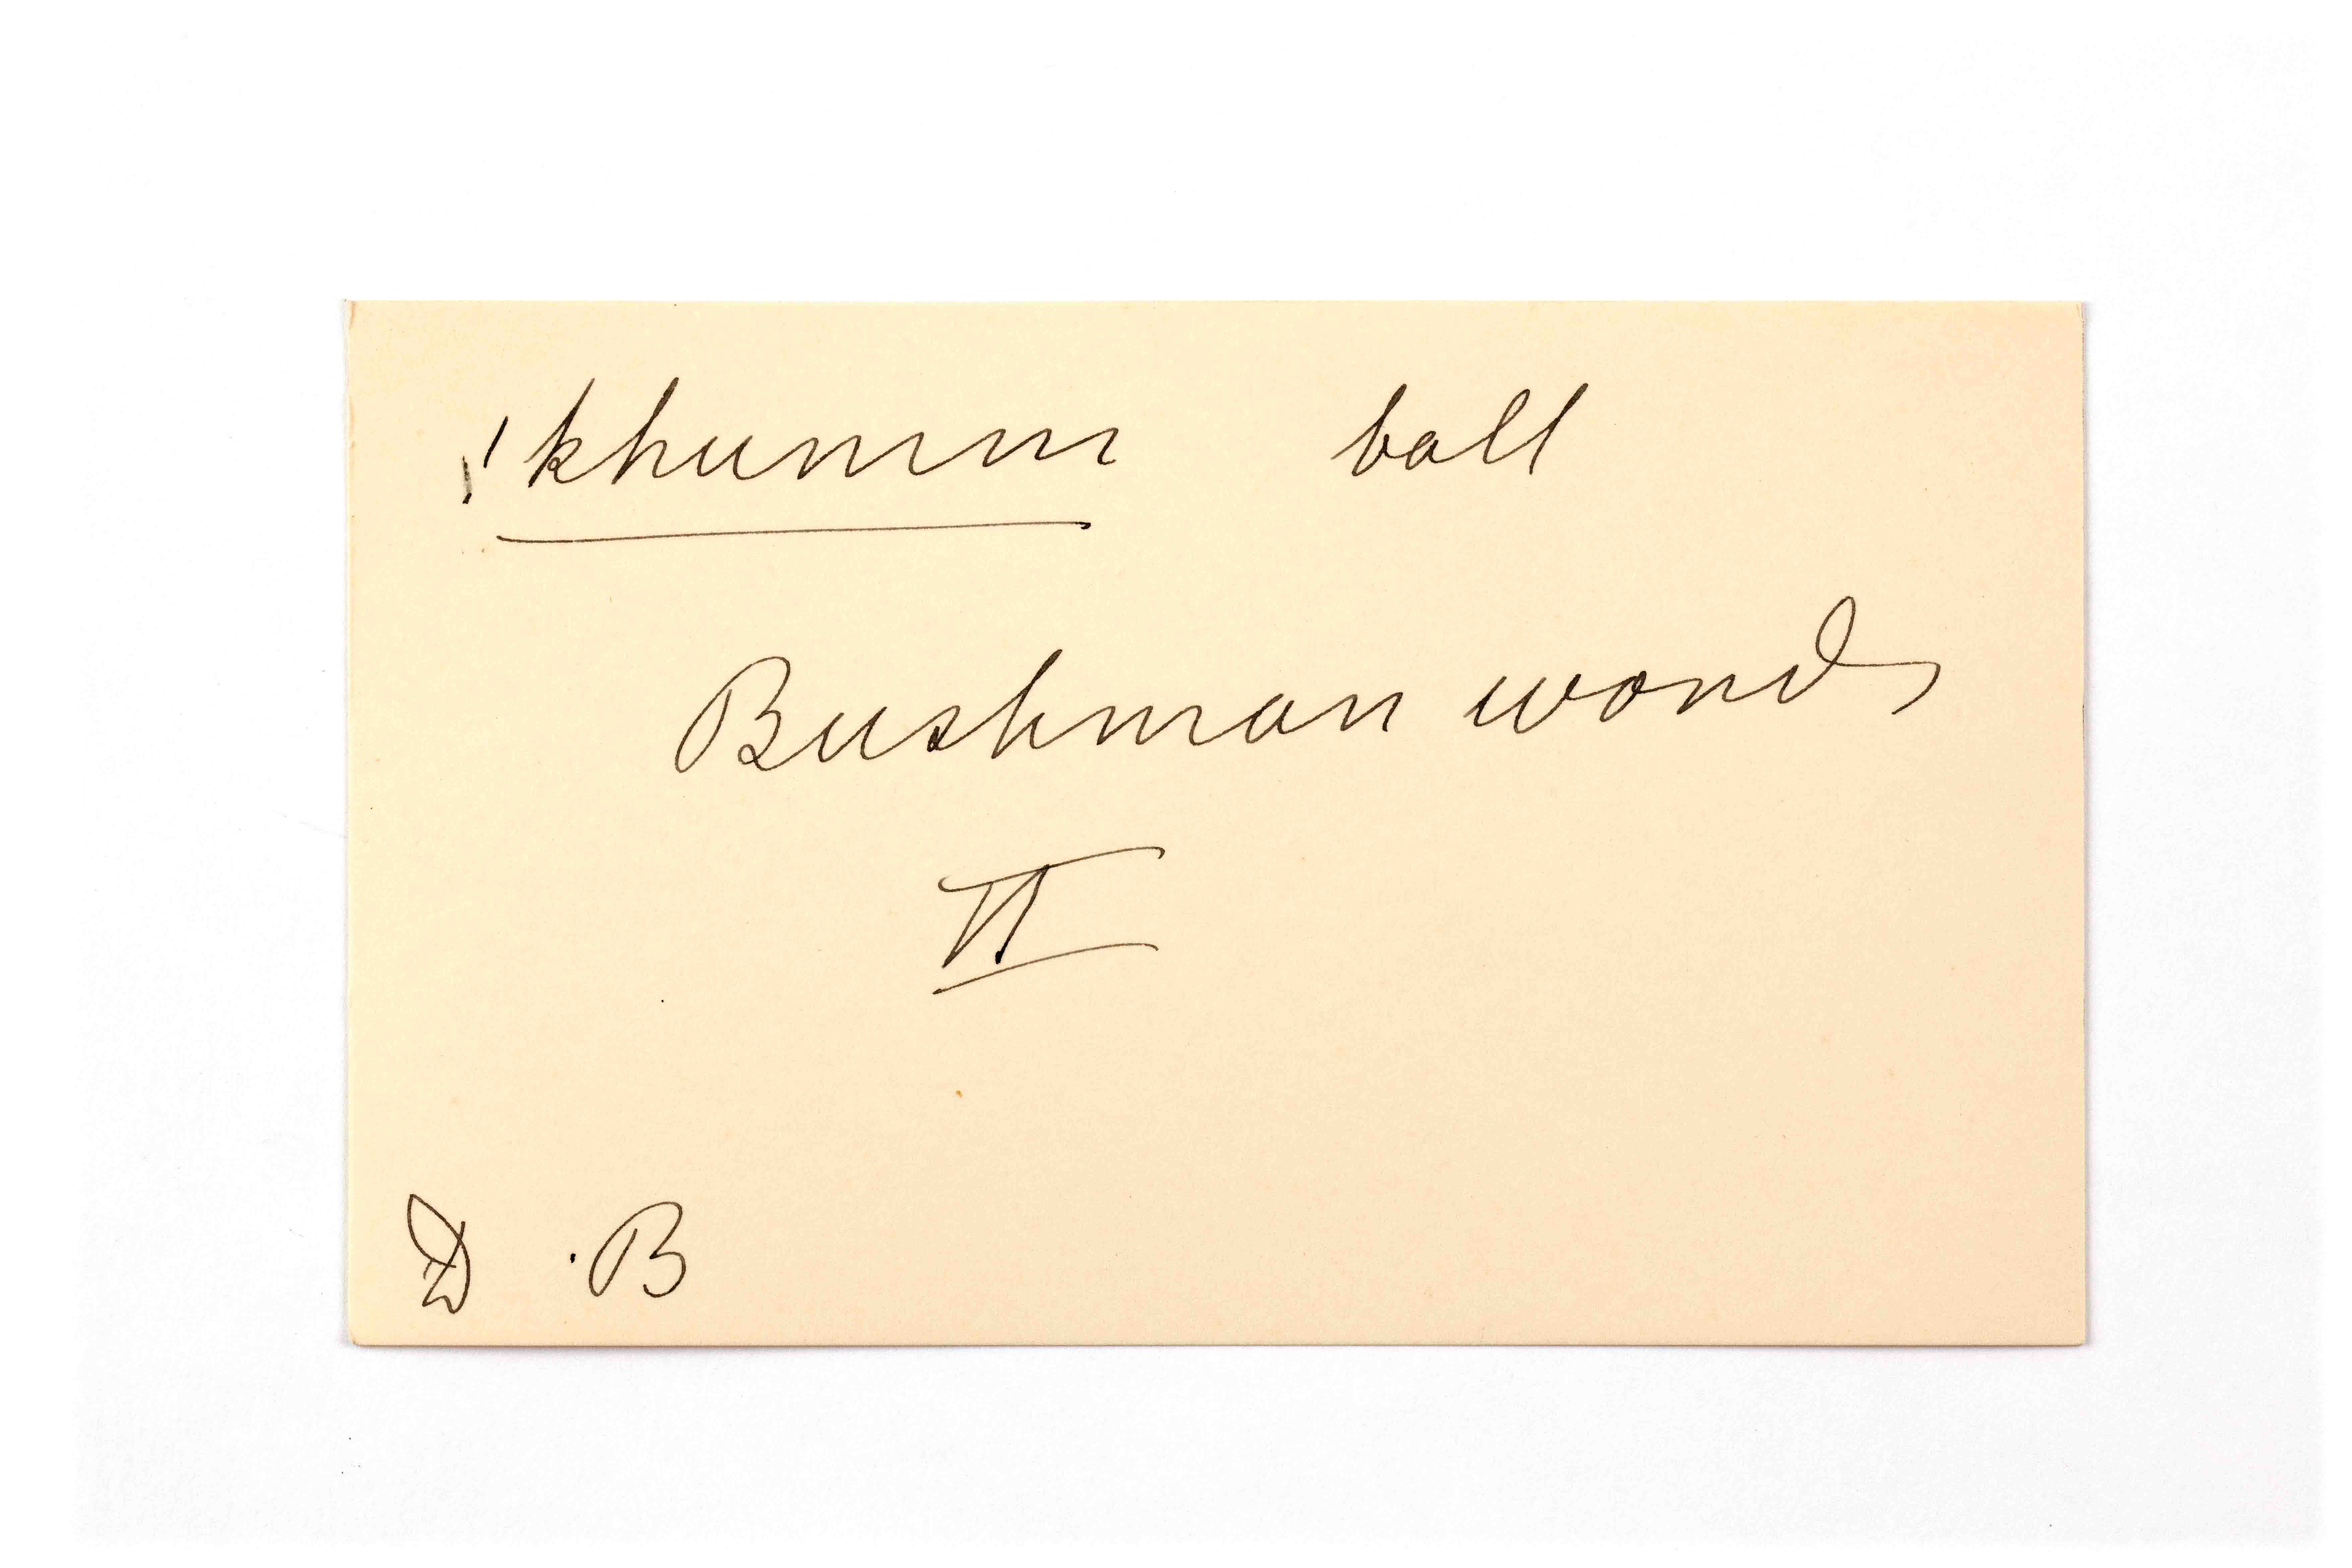 !khumm ball
Bushman words
II
D .B